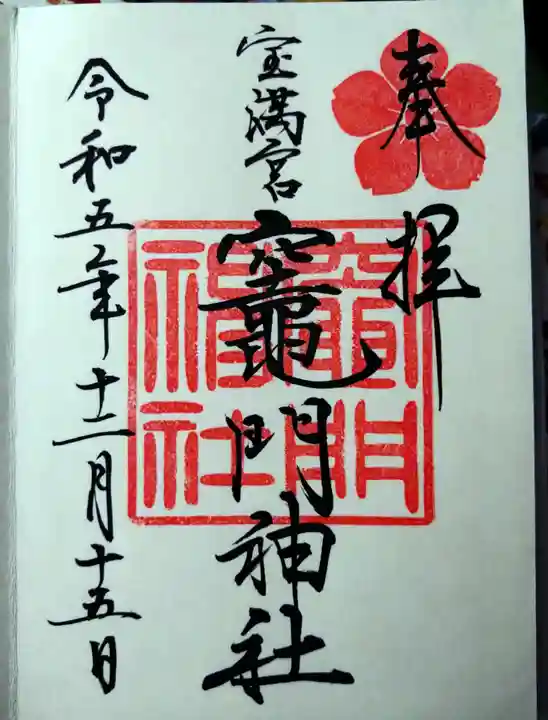 奉拝
宝満宮
竈門神社
令和五年十二月十五日
竈門
神社